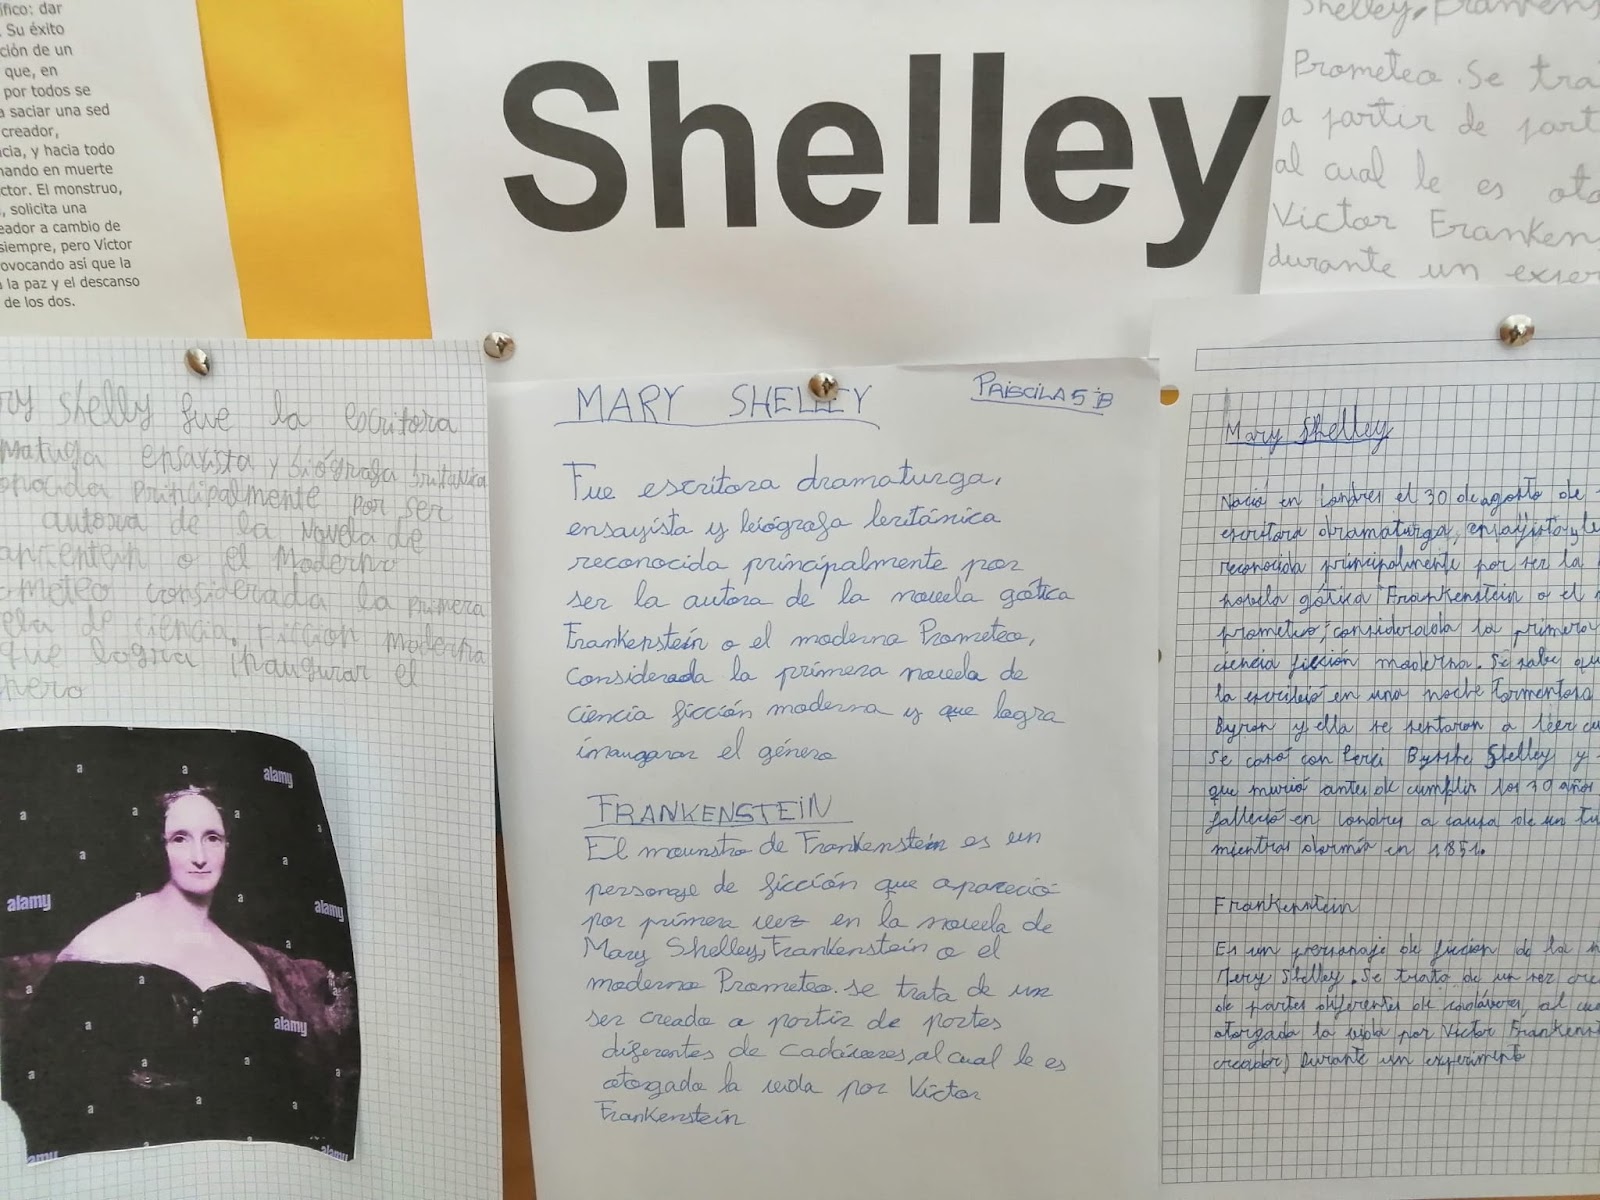 ífico: dar
. Su éxito
ción de un
que, en
por todos se
a saciar una sed
creador,
cia, y hacia todo
nando en muerte
ctor. El monstruo,
, solicita una
eador a cambio de
siempre, pero Víctor
ovocando así que la
a la paz y el descanso
de los dos.
Shelley
Shelley, Frankens
Prometeo. Se tra
a partir de part
al cual le es oto
Victor Frankens
durante un exper
ry Shelly fue la escritora
matuga ensaxista y biógrafa britanica
onocida principalmente por ser
autora de la novela de
o el Moderno
meteo considerada la primera
ela de ciencia. Ficcion moderna
que logra inaugurar el
nero
alamy
alamy
alamy
alamy
alamy
alamy
MARY SHELLEY
PRISCILA 5ºB
Fue escritora dramaturga,
ensayista y biógrafa británica
reconocida principalmente por
ser la autora de la novela gótica
Frankenstein o el moderno Prometeo,
considerada la primera novela de
ciencia ficción moderna y que logra
inaugarar el género
FRANKENSTEIN
El mounstro de Frankenstein es un
personaje de ficción que apareció
por primera vez en la novela de
Mary Shelley, Frankenstein o el
moderno Prometeo. se trata de un
ser creado a partir de partes
diferentes de cadáveres, al cual le es
otorgada la vida por Victor
Frankenstein
Mary Shelley
Nació en Londres el 30 de agosto de
escritora dramaturga, ensayista y
reconocida principalmente por ser la
novela gótica "Frankenstein o el
prometeo", considerada la primera
ciencia ficción moderna. Se sabe qu
la escribió en una noche tormentosa
Byron y ella se sentaron a leer cu
Se casó con Perci Bysshe Shelley y
que murió antes de cumplir los 30 años
falleció en Londres a causa de un tu
mientras dormía en 1851.
Frankenstein
Es un personaje de ficcion de la
Mery Shelley. Se trata de un ser cre
de partes diferentes de cadáveres, al cu
otorgada la vida por Victor Frankens
creador) durante un experimento